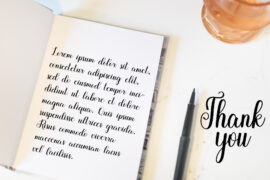 Lorem ipsum dolor sit amet,
consectetur adipiscing elit,
sed do eiusmod tempor inci-
didunt ut labore et dolore
magna aliqua. Quis ipsum
suspendisse ultrices gravida.
Risus commodo viverra
maecenas accumsan lacus
vel facilisis.
Thank
you